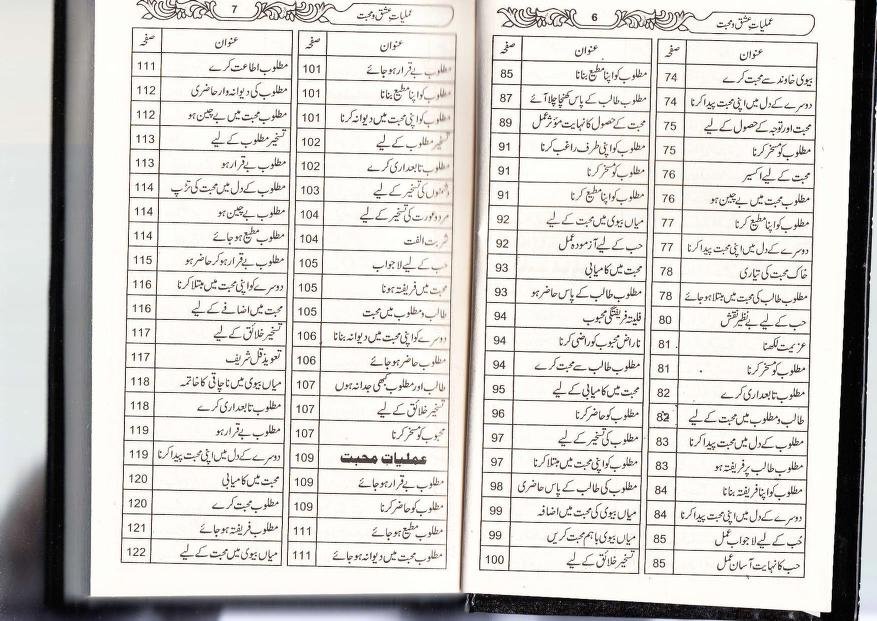 عملیات عشق و محبت 6
عنوان صفحہ
بیوی خاوند سے محبت کرے 74
دوسرے کے دل میں اپنی محبت پیدا کرنا 74
محبت اور توجہ کے حصول کے لیے 75
مطلوب کو مسخر کرنا 75
محبت کے لیے اکسیر 76
مطلوب محبت میں بے چین ہو 76
مطلوب کو اپنا مطیع کرنا 77
دوسرے کے دل میں اپنی محبت پیدا کرنا 77
خاک محبت کی تیاری 78
مطلوب طالب کی محبت میں مبتلا ہو جائے 78
حب کے لیے بے نظیر نقش 80
عزیمت لکھنا 81
مطلوب کو مسخر کرنا 81
مطلوب تابعداری کرے 82
طالب و مطلوب میں محبت کے لیے 82
مطلوب کے دل میں محبت پیدا کرنا 83
مطلوب طالب پر فریفتہ ہو 83
مطلوب کو اپنا فریفتہ بنانا 84
دوسرے کے دل میں اپنی محبت پیدا کرنا 84
حُب کے لیے لاجواب عمل 85
حب کا نہایت آسان عمل 85
عنوان صفحہ
مطلوب کو اپنا مطیع بنانا 85
مطلوب طالب کے پاس کھنچا چلا آئے 87
محبت کے حصول کا نہایت مؤثر عمل 89
مطلوب کو اپنی طرف راغب کرنا 91
مطلوب کو مسخر کرنا 91
مطلوب کو اپنا مطیع کرنا 91
میاں بیوی میں محبت کے لیے 92
حب کے لیے آزمودہ عمل 92
محبت میں کامیابی 93
مطلوب طالب کے پاس حاضر ہو 93
فلیتہ فریفتگی محبوب 94
ناراض محبوب کو راضی کرنا 94
مطلوب طالب سے محبت کرے 94
محبت میں کامیابی کے لیے 95
مطلوب کو حاضر کرنا 96
مطلوب کی تسخیر کے لیے 97
مطلوب کو اپنی محبت میں مبتلا کرنا 97
مطلوب کی طالب کے پاس حاضری 98
میاں بیوی کی محبت میں اضافہ 99
میاں بیوی باہم محبت کریں 99
تسخیر خلائق کے لیے 100
عملیات عشق و محبت 7
عنوان صفحہ
مطلوب بے قرار ہو جائے 101
مطلوب کو اپنا مطیع بنانا 101
مطلوب کو اپنی محبت میں دیوانہ کرنا 101
تسخیر مطلوب کے لیے 102
مطلوب تابعداری کرے 102
دشمنوں کی تسخیر کے لیے 103
مرد و عورت کی تسخیر کے لیے 104
شربت الفت 104
حب کے لیے لاجواب 105
محبت میں فریفتہ ہونا 105
طالب و مطلوب میں محبت 105
دوسرے کو اپنی محبت میں دیوانہ بنانا 106
مطلوب حاضر ہو جائے 106
طالب اور مطلوب کبھی جدا نہ ہوں 107
تسخیر خلائق کے لیے 107
محبوب کو مسخر کرنا 107
عملیات محبت 109
مطلوب بے قرار ہو جائے 109
مطلوب کو حاضر کرنا 109
مطلوب مطیع ہو جائے 111
مطلوب محبت میں دیوانہ ہو جائے 111
عنوان صفحہ
مطلوب اطاعت کرے 111
مطلوب کی دیوانہ وار حاضری 112
مطلوب محبت میں بے چین ہو 112
تسخیر مطلوب کے لیے 113
مطلوب بے قرار ہو 113
مطلوب کے دل میں محبت کی تڑپ 114
مطلوب بے چین ہو 114
مطلوب مطیع ہو جائے 114
مطلوب بے قرار ہو کر حاضر ہو 115
دوسرے کو اپنی محبت میں مبتلا کرنا 116
محبت میں اضافے کے لیے 116
تسخیر خلائق کے لیے 117
تعویذ قل شریف 117
میاں بیوی میں ناچاقی کا خاتمہ 118
مطلوب تابعداری کرے 118
مطلوب بے قرار ہو 119
دوسرے کے دل میں اپنی محبت پیدا کرنا 119
محبت میں کامیابی 120
مطلوب محبت کرے 120
مطلوب فریفتہ ہو جائے 121
میاں بیوی میں محبت کے لیے 122